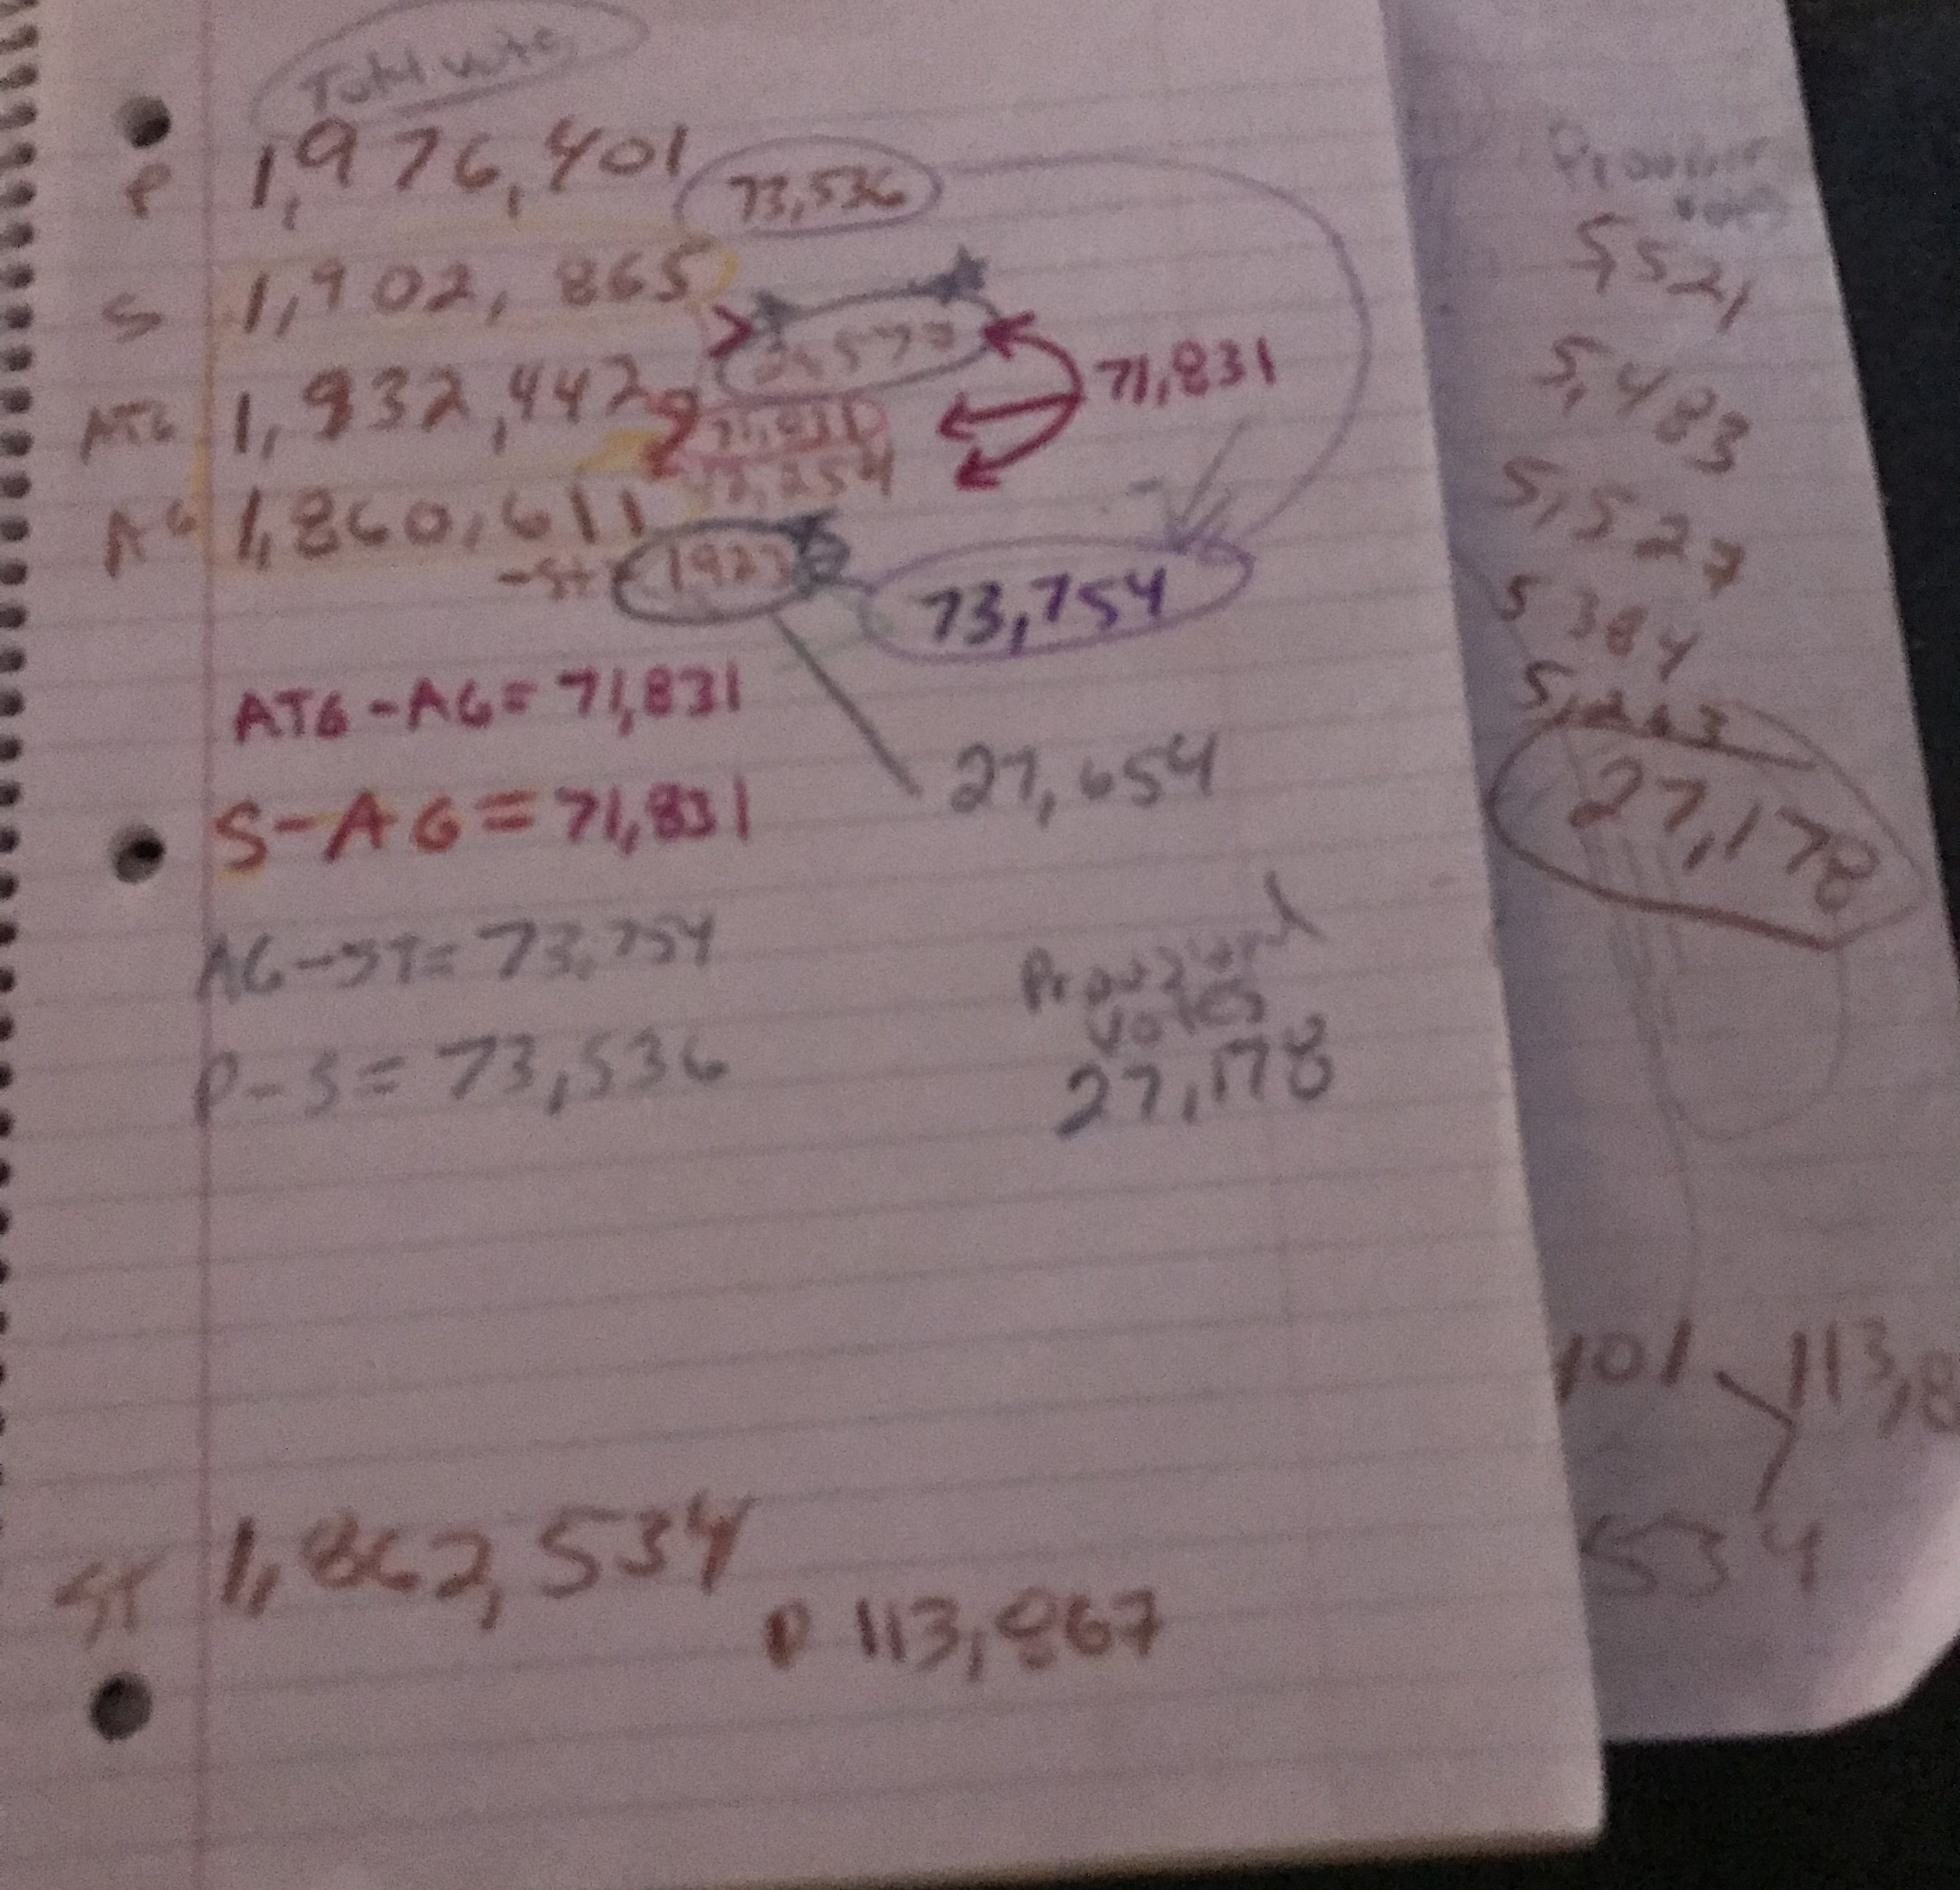 Total vote
P 1,976,401 73,536
S 1,902,865
ATG 1,932,442 71,831
AG 1,860,611 72,254
-ST 1923 73,754
ATG-AG= 71,831
S-AG= 71,831
27,654
AG-ST= 73,754
P-S= 73,536
Votes
27,178
ST 1,862,534
P 113,867
5,521
5,483
5,527
5384
5,263
27,178
401 113,8
534